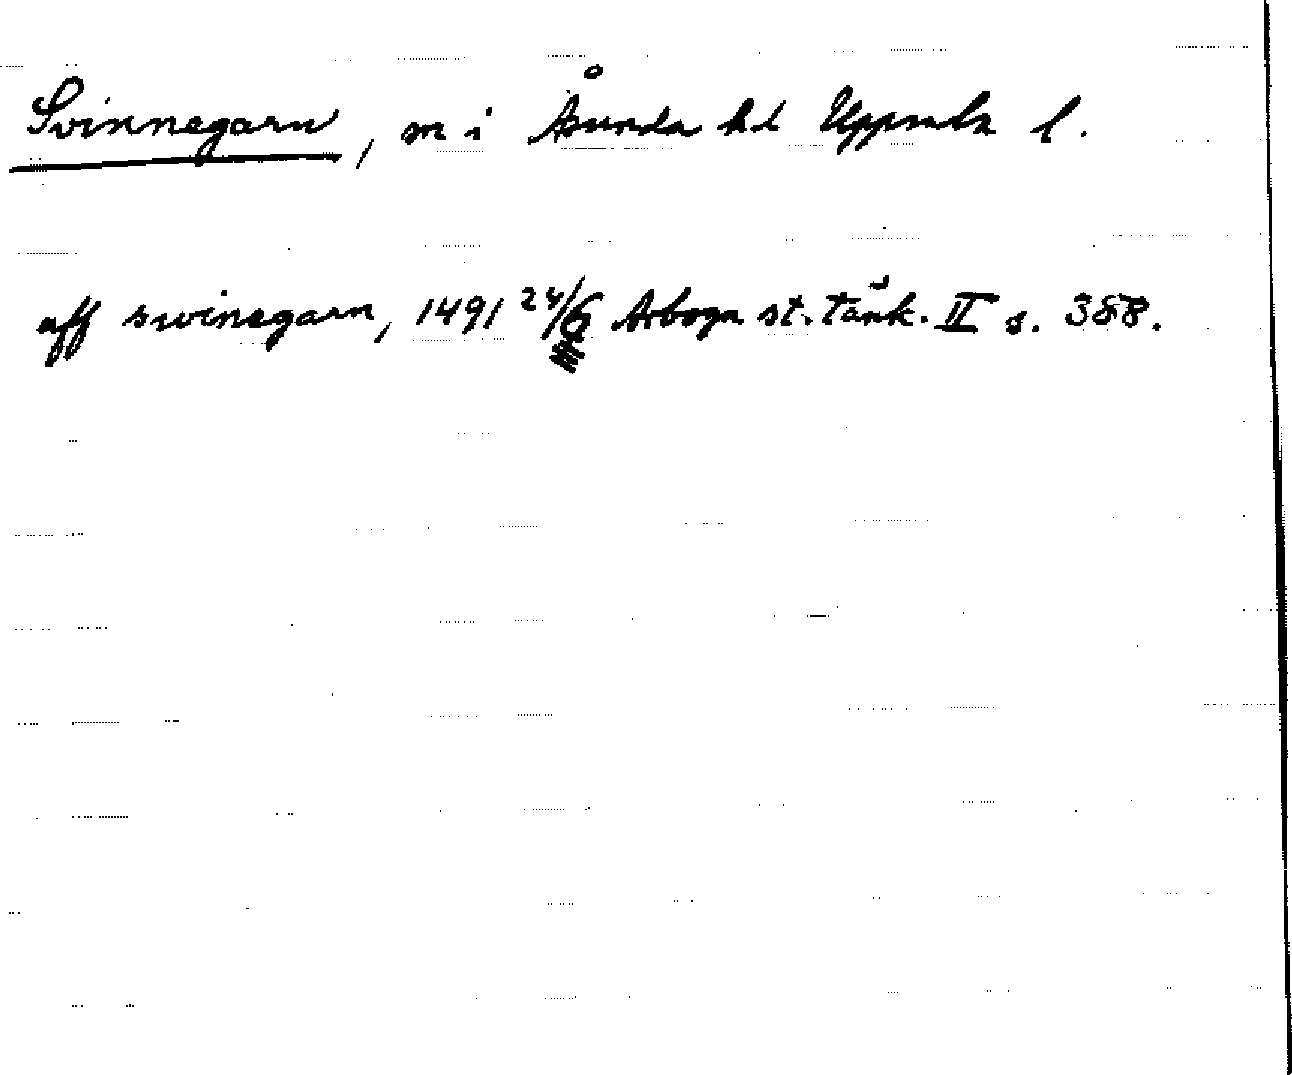 Svinnegarn, m i Åsunda hd Uppsala l.
aff swinegarn, 1491 24/6 Arboga st. tänk. II s. 388.